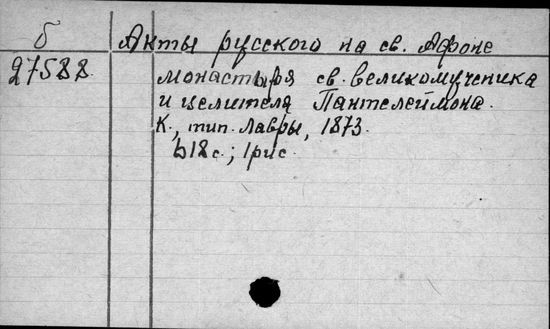 б Акты русского на св. Афоне
27588 монастыря св. великомученика
и целителя Пантелеймона.
К., тип. Лавры, 1873.
618 с.; 1 рис.